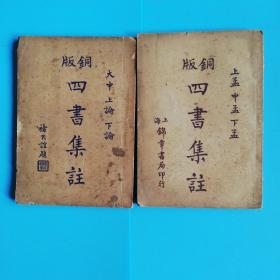 銅版
四書集註
大中上論下論
銅版
四書集註
上孟中孟下孟
上海
錦章書局印行